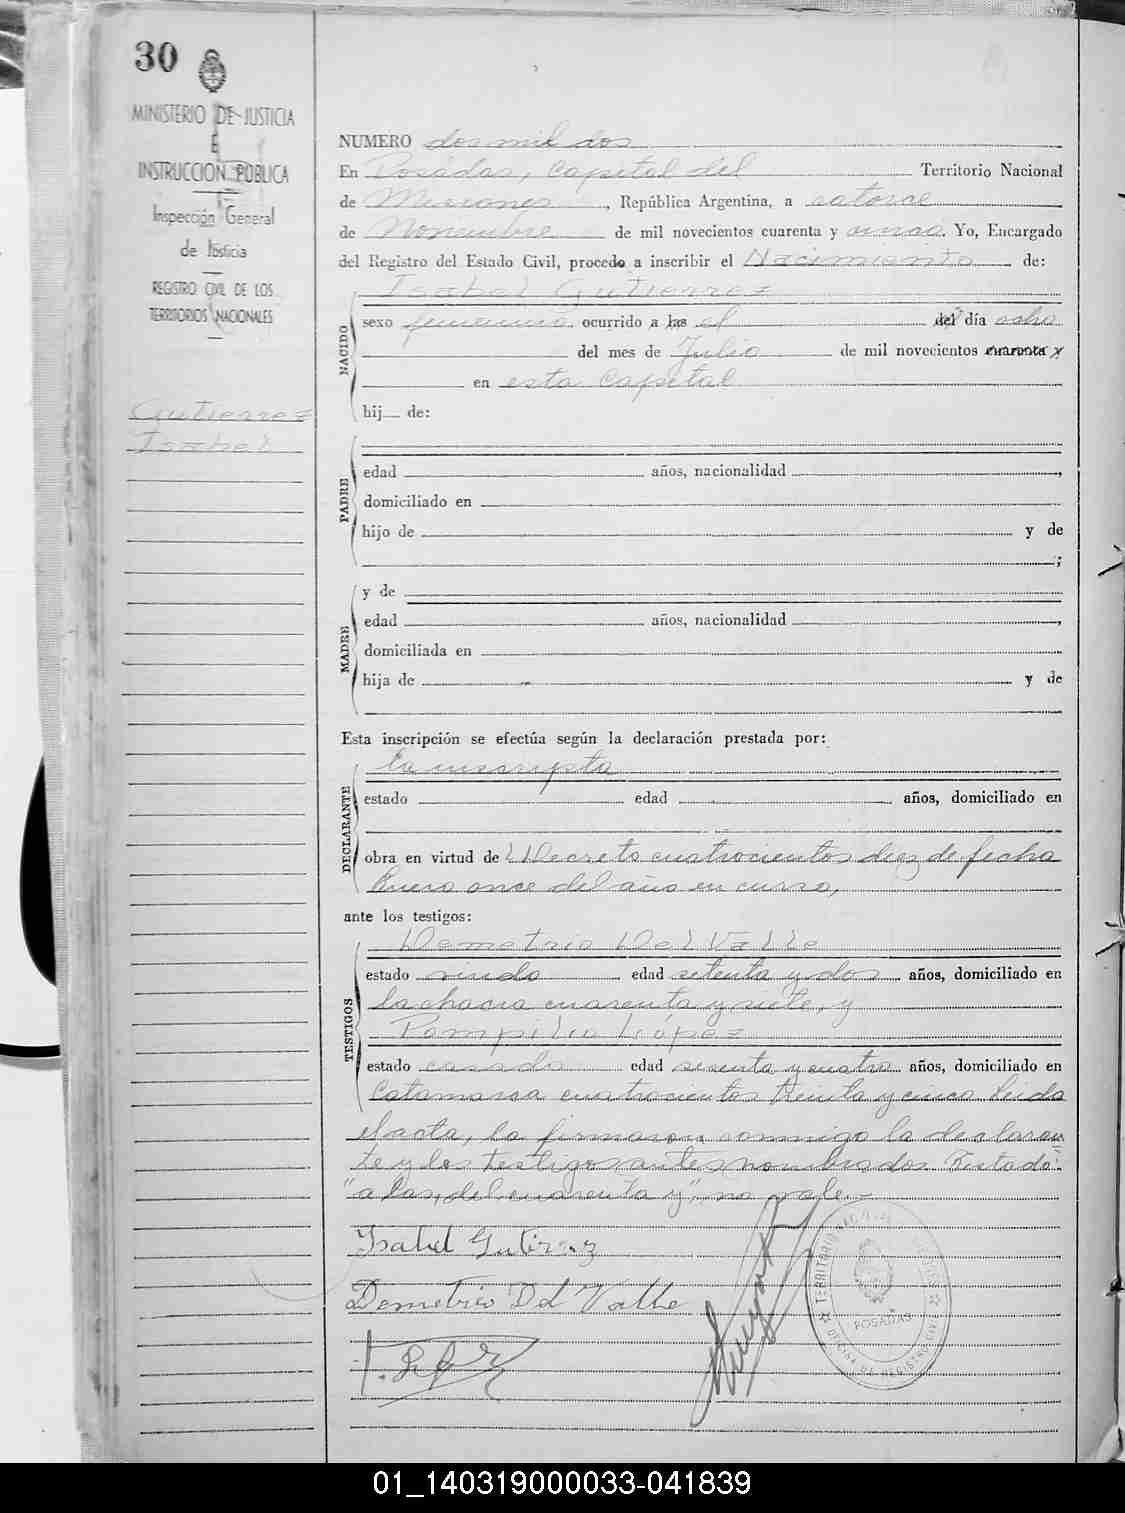 30
MINISTERIO DE JUSTICIA
E
INSTRUCCION PUBLICA
Inspección General
de Justicia
REGISTRO CIVIL DE LOS
TERRITORIOS NACIONALES
Gutierrez
Isabel
NUMERO dos mil dos
En Posadas, Capital del Territorio Nacional
de Misiones, República Argentina, a catorce
de Noviembre de mil novecientos cuarenta y . Yo, Encargado
del Registro del Estado Civil, procedo a inscribir el Nacimiento de:
Isabel Gutierrez
NACIDO
sexo femenino ocurrido a las el del día ocho
del mes de Julio de mil novecientos cuarenta y
en esta Capital
hij de:
PADRE
edad años, nacionalidad ,
domiciliado en
hijo de y de
;
MADRE
y de
edad años, nacionalidad ,
domiciliada en
hija de y de
Esta inscripción se efectúa según la declaración prestada por:
DECLARANTE
La inscripta
estado edad años, domiciliado en
obra en virtud del Decreto cuatrocientos diez de fecha
Enero once del año en curso,
ante los testigos:
TESTIGOS
Demetrio Del Valle
estado viudo edad setenta y dos años, domiciliado en
la chacra cuarenta y siete, y
Pompilio López
estado casado edad sesenta y cuatro años, domiciliado en
Catamarca cuatrocientos treinta y cinco. Leida
el acta, la firmaron conmigo la declaran
te y los testigos antes nombrados. Testado:
"a las, del, cuarenta y" no vale.-
Isabel Gutierrez
Demetrio Del Valle
POSADAS
01_140319000033-041839